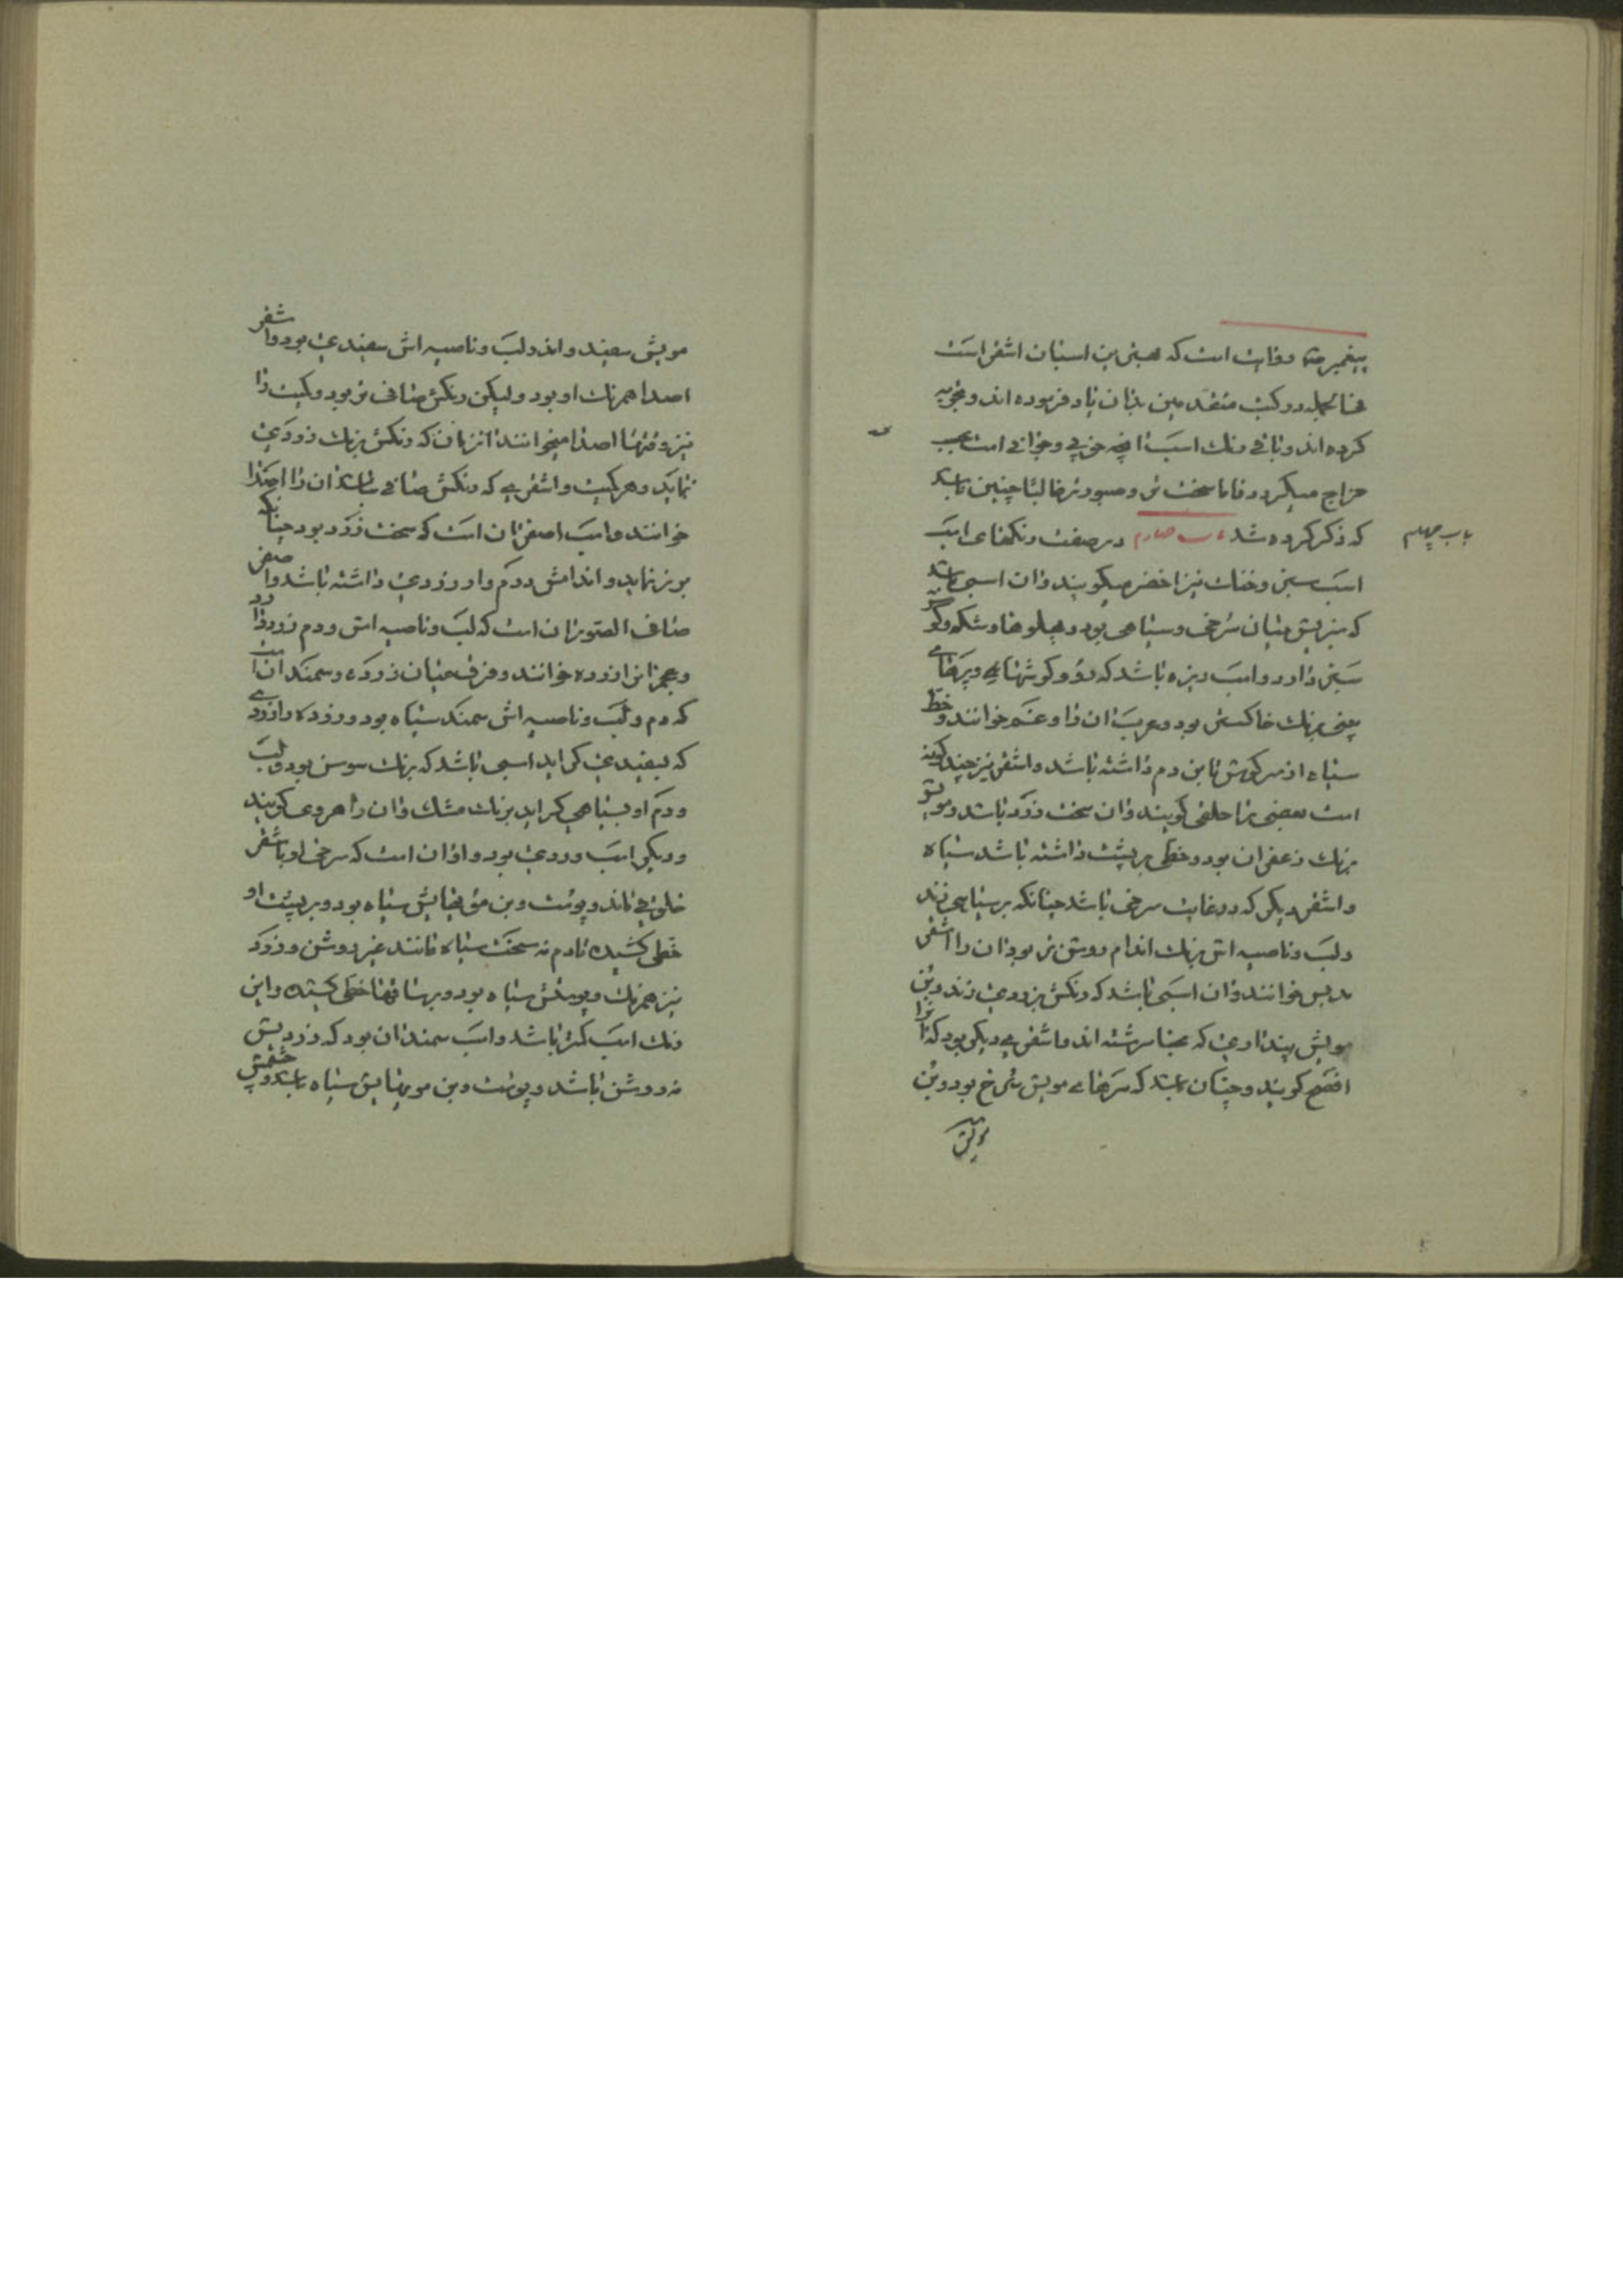 پیغمبر روایت است که بهترین اسبان اشقر است
فی الجمله در کتب متقدمین بدان یاد فرموده اند و تجربه
کرده اند و باقی رنک اسب انچه خوبی و جوانی است بحسب
مزاج میکردد فاما سخت تر و صبورتر غالبا چنین باشد
که ذکر کرده شد باب چهارم در صفت رنکهای اسب
باب چهلم
اسب سبز و خنک نیز اخضر میکویند و ان اسبی باشد
که سبزیش میان سرخی و سیاهی بود و پهلوها و شکم و
سبزی دارد و اسب دیزه باشد که رو و کوشهای و پرهای
بینی برنک خاکستر بود و عرب ان را خوانند و خط
سیاه از سر کوش تا بن دم داشته باشد و اشقر نیز چند کونه
است بعضی را خلقی کویند و ان سخت زرد باشد و مویش
برنک زعفران بود و خطی بر پشت داشته باشد سیاه
و اشقر دیکر که در غایت سرخی باشد چنانکه بر سیاهی زند
و لب و ناصیه اش برنک اندام روشن تر بود ان را اشقر
خوانند و ان اسبی باشد که رنکش بزردی زند و بن
مویش پنداری که بحنا سرشته اند و اشقری دیکر بود که انرا
افضح کویند و چنان باشد که سرهای مویش سرخ بود و بن
مویش
مویش سفید و اند و لب و ناصیه اش سفیدی بود و اشقر
اصدا همرنک او بود و لیکن رنکش صافی تر بود و کمیت را
نیز اصدا میخوانند از ان که رنکش برنک زردی
نماید و هر کمیت و اشقری که رنکش صافی نباشد ان را اصدا
خوانند و اسب اصفر ان است که سخت زرد بود چنانکه
بور نماید و اندامش و دم و زردی داشته باشد و اصفر
صافی ان است که لب و ناصیه اش و دم زرد بود
و عجم انرا زرده خوانند و فرق میان زرده و سمند ان است
که دم و لب و ناصیه اش سمند سیاه بود و زرده را زردی
که بسفیدی کراید اسبی باشد که برنک سوسن بود و لب
و دم او بسیاهی کراید برنک مشک و ان را هروی کویند
و دیکر اسب وردی بود و ان است که سرخی او باشقر
خلوقی ماند و پوست و بن مویهایش سیاه بود و بر پشت او
خطی کشیده تا دم نه سخت سیاه مانند غیر روشن و زرد
نیز همرنک و پوستش سیاه بود و بر ساقها خطی کشیده و این
رنک اسب کمتر باشد و اسب سمند ان بود که زردیش
نه روشن باشد و پوست و بن مویهایش سیاه باشد و چشمش